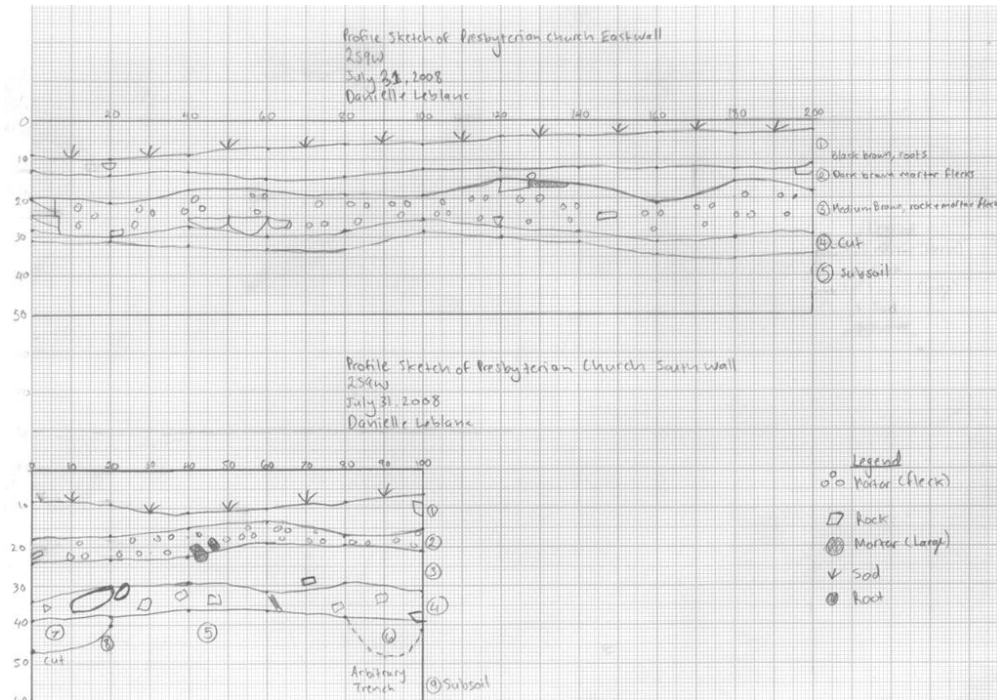 Profile Sketch of Presbyterian Church East wall
2S9W
July 31, 2008
Danielle Leblanc
0 20 40 60 80 100 120 140 160 180 200
10
20
30
40
50
① Black brown, roots
② Dark brown mortar flecks
③ Medium Brown, rock + mortar fleck
④ Cut
⑤ Subsoil
Profile Sketch of Presbyterian Church South wall
2S9W
July 31, 2008
Danielle Leblanc
0 10 20 30 40 50 60 70 80 90 100
10
20
30
40
50
60
①
②
③
④
⑦ ⑧ ⑤ ⑥
Cut
Arbitrary
Trench
⑨ Subsoil
Legend
Mortar (fleck)
Rock
Mortar (Large)
Sod
Root